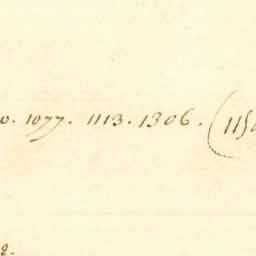 0. 1077. 1113. 1306. (115
2.